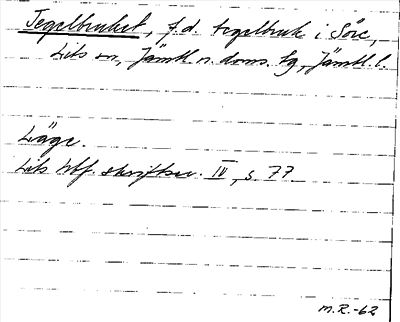 Tegelbruket, f.d. tegelbruk i Söre,
Lits sn, Jämtl. n. doms. tg, Jämtl. l.
Läge.
Lits hbf. skriftser. IV, s. 77
M.R.-62